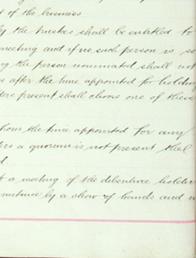 of the business
the trustees shall be entitled to
meeting and if no such person is so
the person nominated shall not
after the time appointed for holding
present shall choose one of their
from the time appointed for any
a quorum is not present, the
a meeting of the debenture holders
by a show of hands and